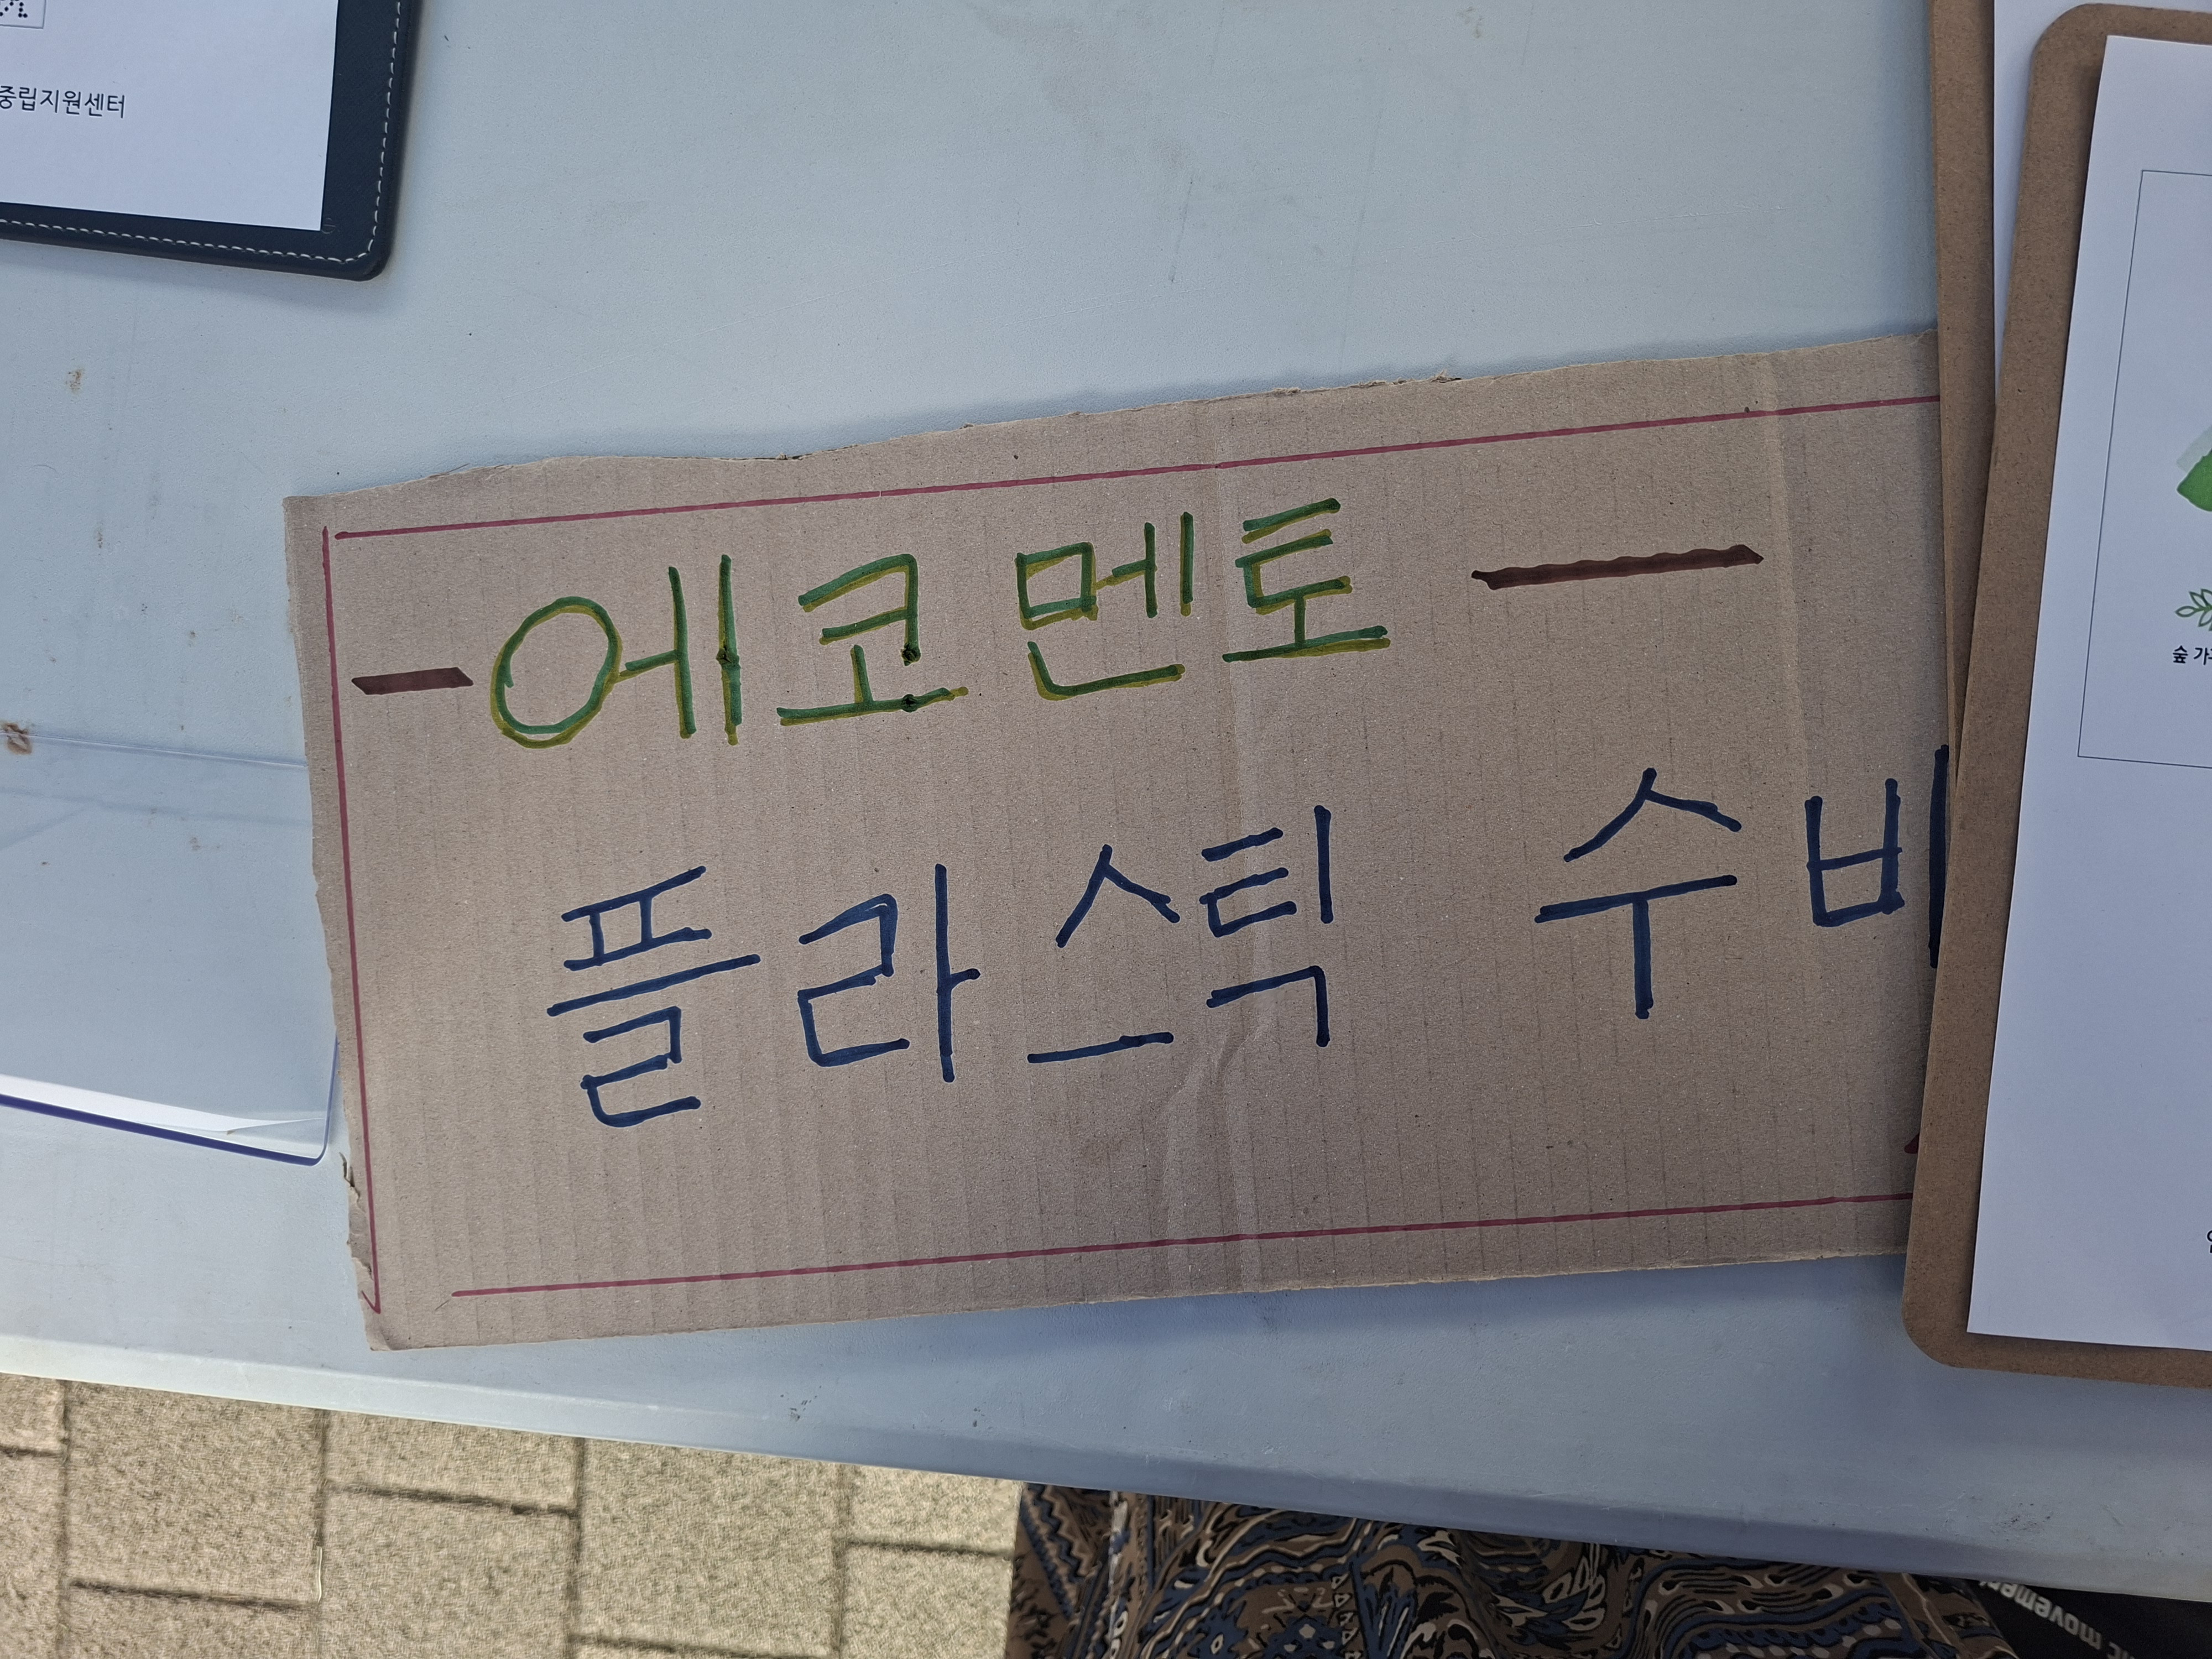 중립지원센터
에코멘토
플라스틱 수비
숲 가
movement